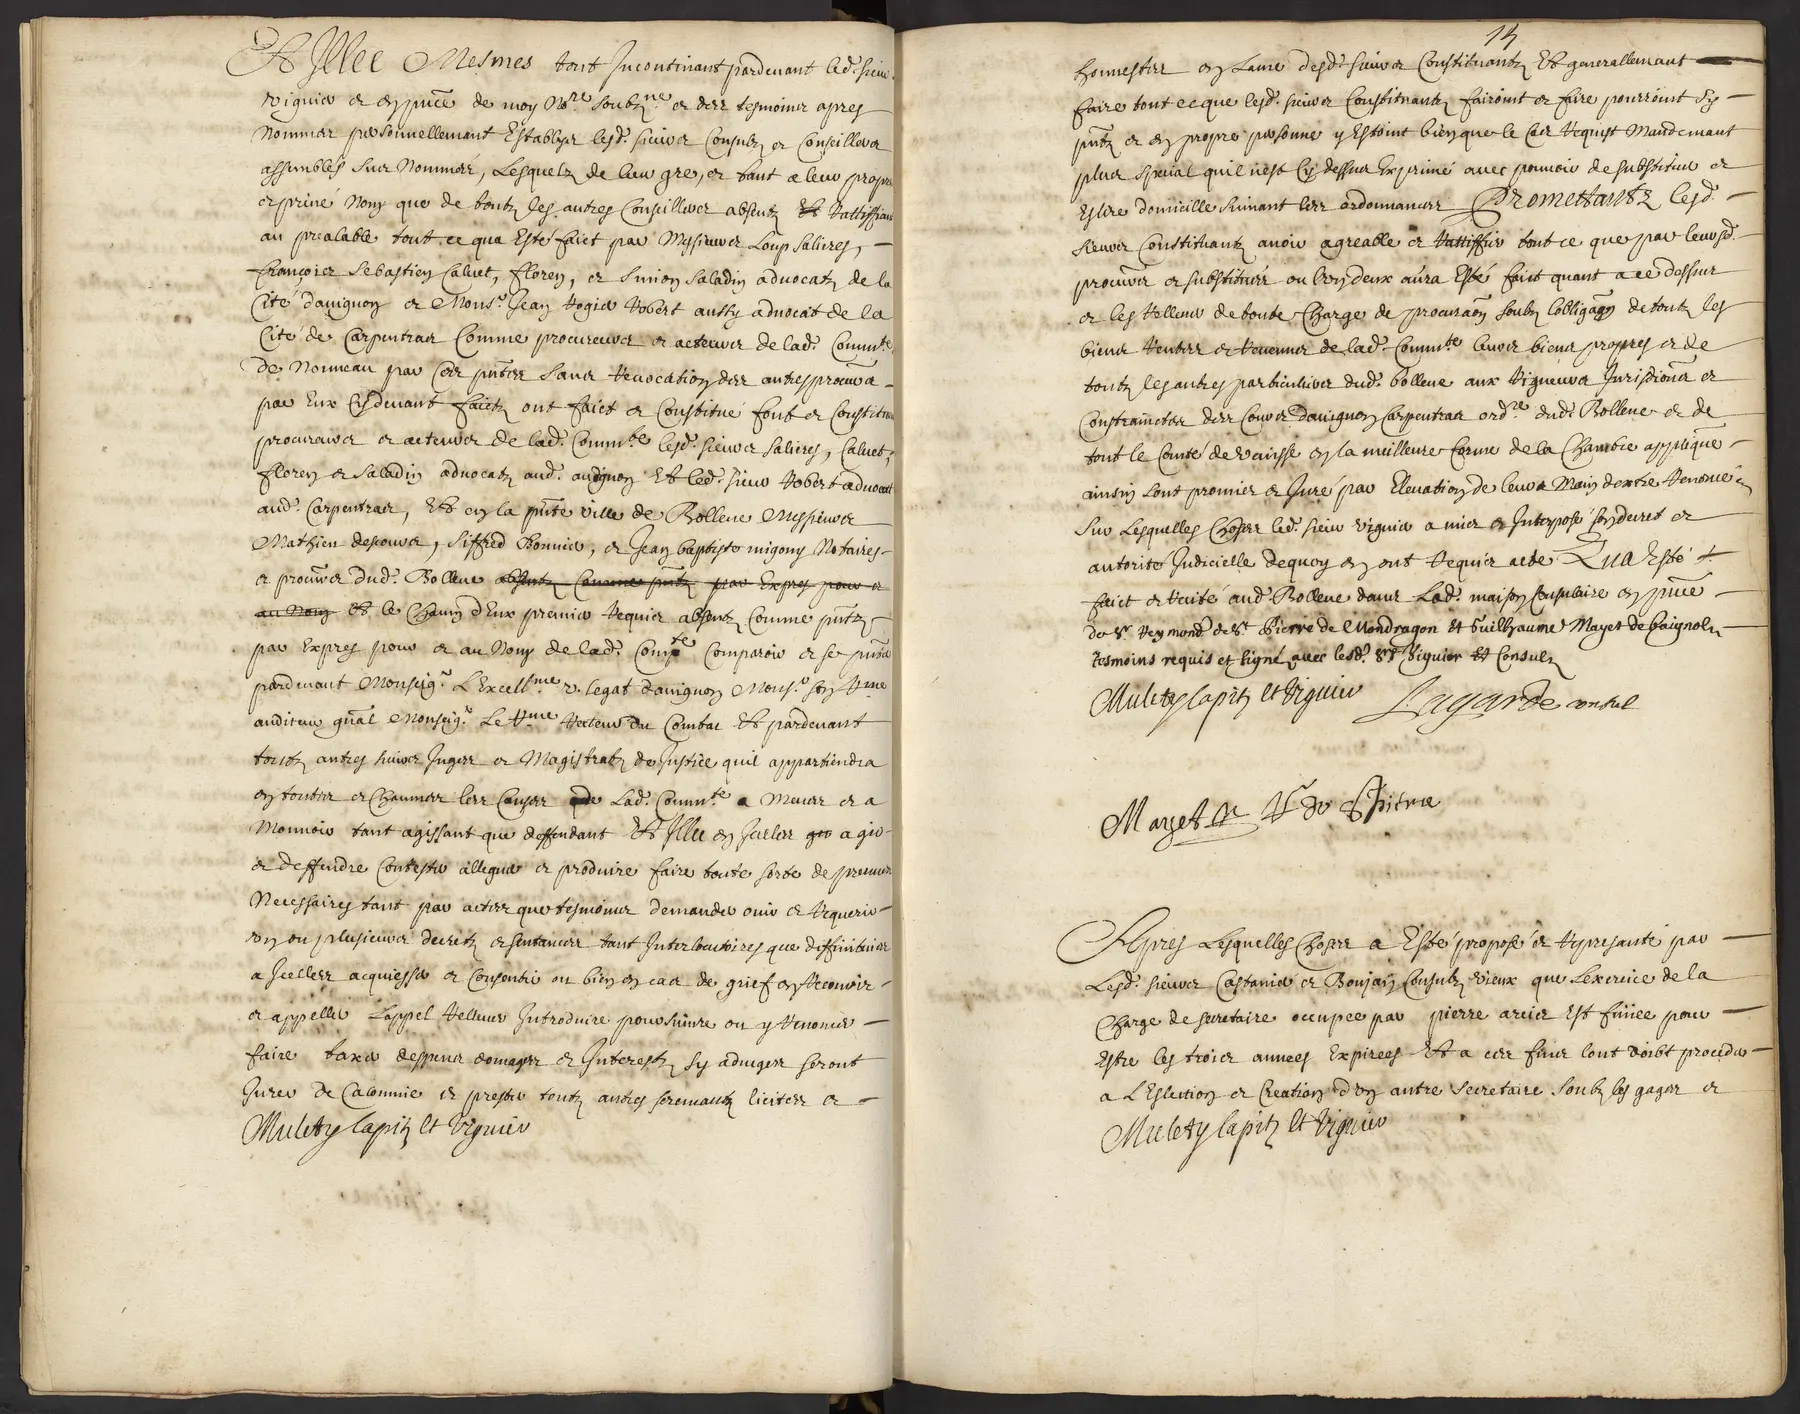 Et Illec Mesmes tout Incontinant pardevant led.t sieur
viguier et en p.nce de moy No.re soubz.ne et des tesmoins apres
Nommes personnellemant Establys lesd.t sieurs Consulz et Conseillers
assembles sus Nommés, Lesquelz de leur gre, et tant a leur propre
et privé Nom que de toutz les autres Conseillers absentz Et Rattiffiant
au prealable tout ce qua Esté faict par Messieurs Loup Salieres, –
françois Sebastien Calvet, floren, et Simon Saladin advocatz de la
Cité davignon et Mons.r Jean Robert aussy advocat de la
Cité de Carpentras Comme procureurs et acteurs de lad.t Commu.te
de Nouveau par Ces p.ntes sans Revocation des autres procur.s –
par Eux Cydevant faictz ont faict et Constitué font et Constituent
procureurs et acteurs de lad.t Commu.te lesd.t sieurs Salieres, Calvet,
floren et Saladin advocatz aud.t avignon Et led.t sieur Robert advocat
aud.t Carpentras, Et en la p.nte ville de Bollene Messieurs
Mathieu descours, Siffred Bonnier, et Jean baptiste migony Notaires –
et procur.s dud.t Bollene absentz Comme p.ntz par Expres pour et
au Nom Et le Chaun dEux premier Requis absentz Comme p.ntz –
par Expres pour et au Nom de lad.t Com.te Comparoir et se p.nter
pardevant Monseig.r LExcell.me v. legat davignon Mons.r son R.me
auditeur g.nal Monseig.r Le R.me Recteur du Comtat Et pardevant
toutz autres sieurs Juges et Magistratz de Justice quil appartiendra
en toutes et Chaunes les Causes de Lad.t Commu.te a Meues et a
Mouvoir tant agissant que deffendant Et Illec en Icelles a gir –
et deffendre Contester alleguer et produire faire toute sorte de preuves
Necessaires tant par actes que tesmoins demander ouir et Requerir –
un ou plusieurs decretz et sentances tant Interlocutoires que diffinitives
a Icelles acquiesser et Consentir ou bien en cas de grief en Recourir –
et appeller Lappel Relever Introduire poursuivre ou y Renoncer –
faire taxer despens domages et Interestz sy adjuges seront
Jurer de Calomnie et prester toutz autres seremantz licites et –
Mulety Capit.n et viguier
14
honnestes en Lame desd.t sieurs Constituantz Et generallemant –
faire tout ce que lesd.t sieurs Constituantz fairoint et faire pourroint sy –
p.ntz et en propre personne y Estoint bien que le Cas Requist Mandemant
plus special quil nest Cy dessus Exprimé avec pouvoir de substituer et
Eslire domicille suivant les ordonnances Promettantz lesd.t –
sieurs Constituantz avoir agreable et Rattiffier tout ce que par leursd.t
procur.s et substitués ou lun deux aura Esté faict quant a ce dessus
et les Relever de toute Charge de procura.on soubz lobliga.on de toutz les
biens Rentes et Revenus de lad.t Commu.te leurs biens propres et de
toutz les autres particuliers dud.t bollene aux Rigueurs Jurisdi.ons et
Constrainctes des Cours davignon Carpentras ord.re dud.t Bollene et de
tout le Comté de venisse en la meilleure forme de la Chambre appliquée –
ainsin lont promis et Juré par Elevation de leurs Main dextre Renoncé.n
Sur Lesquelles Choses led.t sieur viguier a mis et Interposé son decret et
autorité Judicielle dequoy en ont Requis acte Qua Esté +
faict et Recité aud.t Bollene dans Lad.t maison Consulaire en p.nce –
de S.r Reymond de S.t Pierre de Mondragon Et Guilhaume Mayet de baignolz
Tesmoins requis et signé avec lesd.t S.rs Viguier Et Consulz
Mulety Capit.n Et Viguier Lagarde consul
Mayet R. de S.t Pierre
Apres Lesquelles Choses a Esté proposé et Represanté par –
Lesd.t sieurs Castanier et Boujay Consulz vieux que Lexercice de la
Charge de Secretaire occupée par pierre arcis Est finiee pour –
Estre les trois annees Expirees Et a ces fins lont doibt proceder –
a LEslection et Creation dun autre Secretaire soubz les gages et
Mulety Capit.n Et Viguier